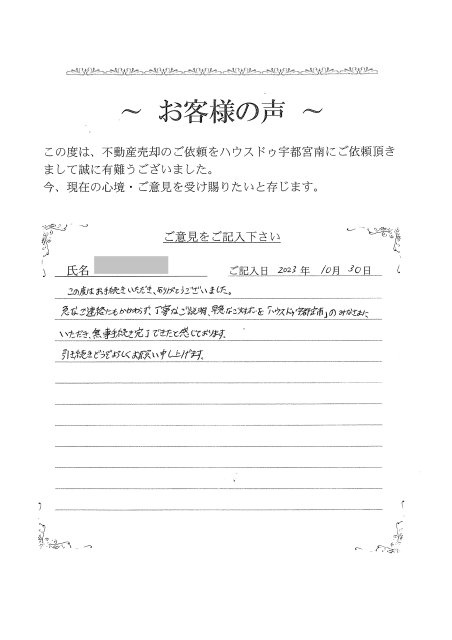 ～ お客様の声 ～
この度は、不動産売却のご依頼をハウスドゥ宇都宮南にご依頼頂き
まして誠に有難うございました。
今、現在の心境・ご意見を受け賜りたいと存じます。
ご意見をご記入下さい
氏名
ご記入日 2023 年 10月 30日
この度はお手続きいただき、ありがとうございました。
急なご連絡にもかかわらず、丁寧なご説明、早急なご対応を「ハウスドゥ宇都宮南」のみなさまに
いただき、無事手続き完了できたと感じております。
引き続きどうぞよろしくお願い申し上げます。